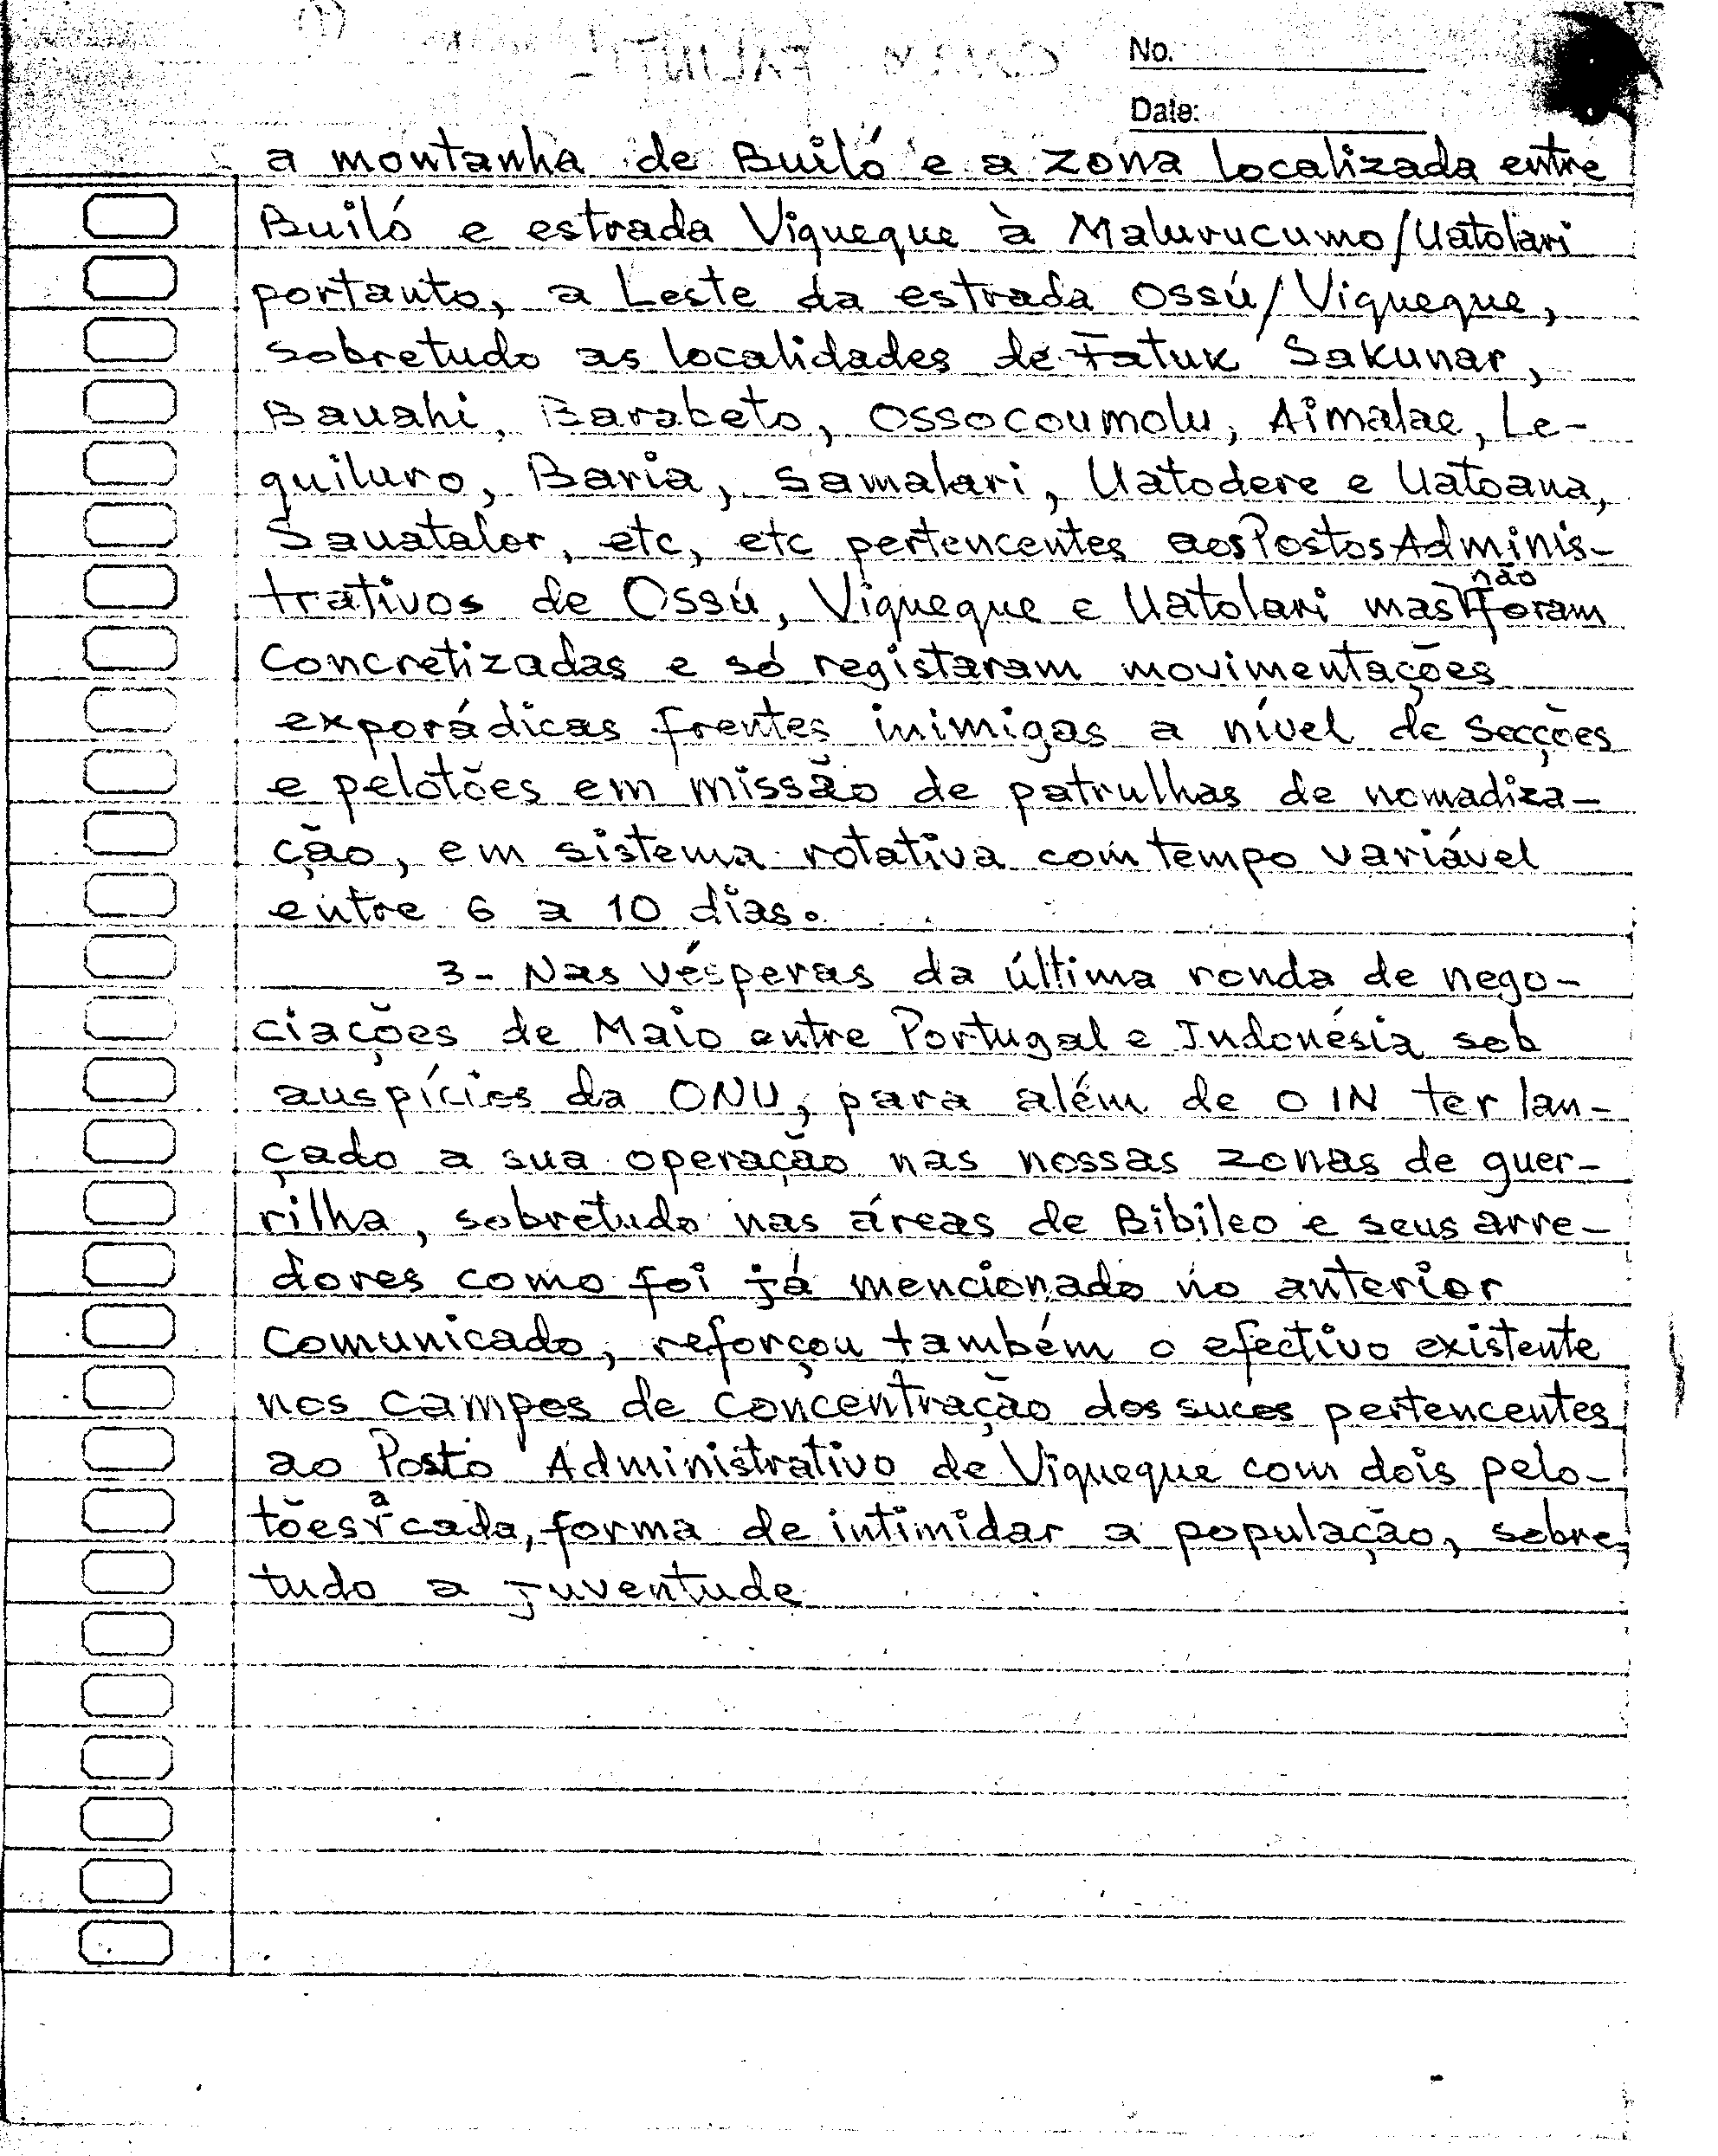 No.
Date:
a montanha de Builó e a zona localizada entre
Builó e estrada Viqueque à Malurucumo/Uatolari
portanto, a Leste da estrada Ossú/Viqueque,
sobretudo as localidades de Fatuk Sakunar,
Bauahi, Barabeto, Ossocoumolu, Aimalae, Le-
quiluro, Baria, Samalari, Uatodere e Uatoana,
Sauatalor, etc, etc pertencentes aos Postos Adminis-
trativos de Ossú, Viqueque e Uatolari mas não foram
concretizadas e só registaram movimentações
exporádicas frentes inimigas a nível de Secções
e pelotões em missão de patrulhas de nomadiza-
ção, em sistema rotativa com tempo variável
entre 6 a 10 dias.
3- Nas vésperas da última ronda de nego-
ciações de Maio entre Portugal e Indonésia sob
auspícios da ONU, para além de o IN ter lan-
çado a sua operação nas nossas zonas de guer-
rilha, sobretudo nas áreas de Bibileo e seus arre-
dores como foi já mencionado no anterior
comunicado, reforçou também o efectivo existente
nos campos de concentração dos sucos pertencentes
ao Posto Administrativo de Viqueque com dois pelo-
tões a cada, forma de intimidar a população, sobre-
tudo a juventude